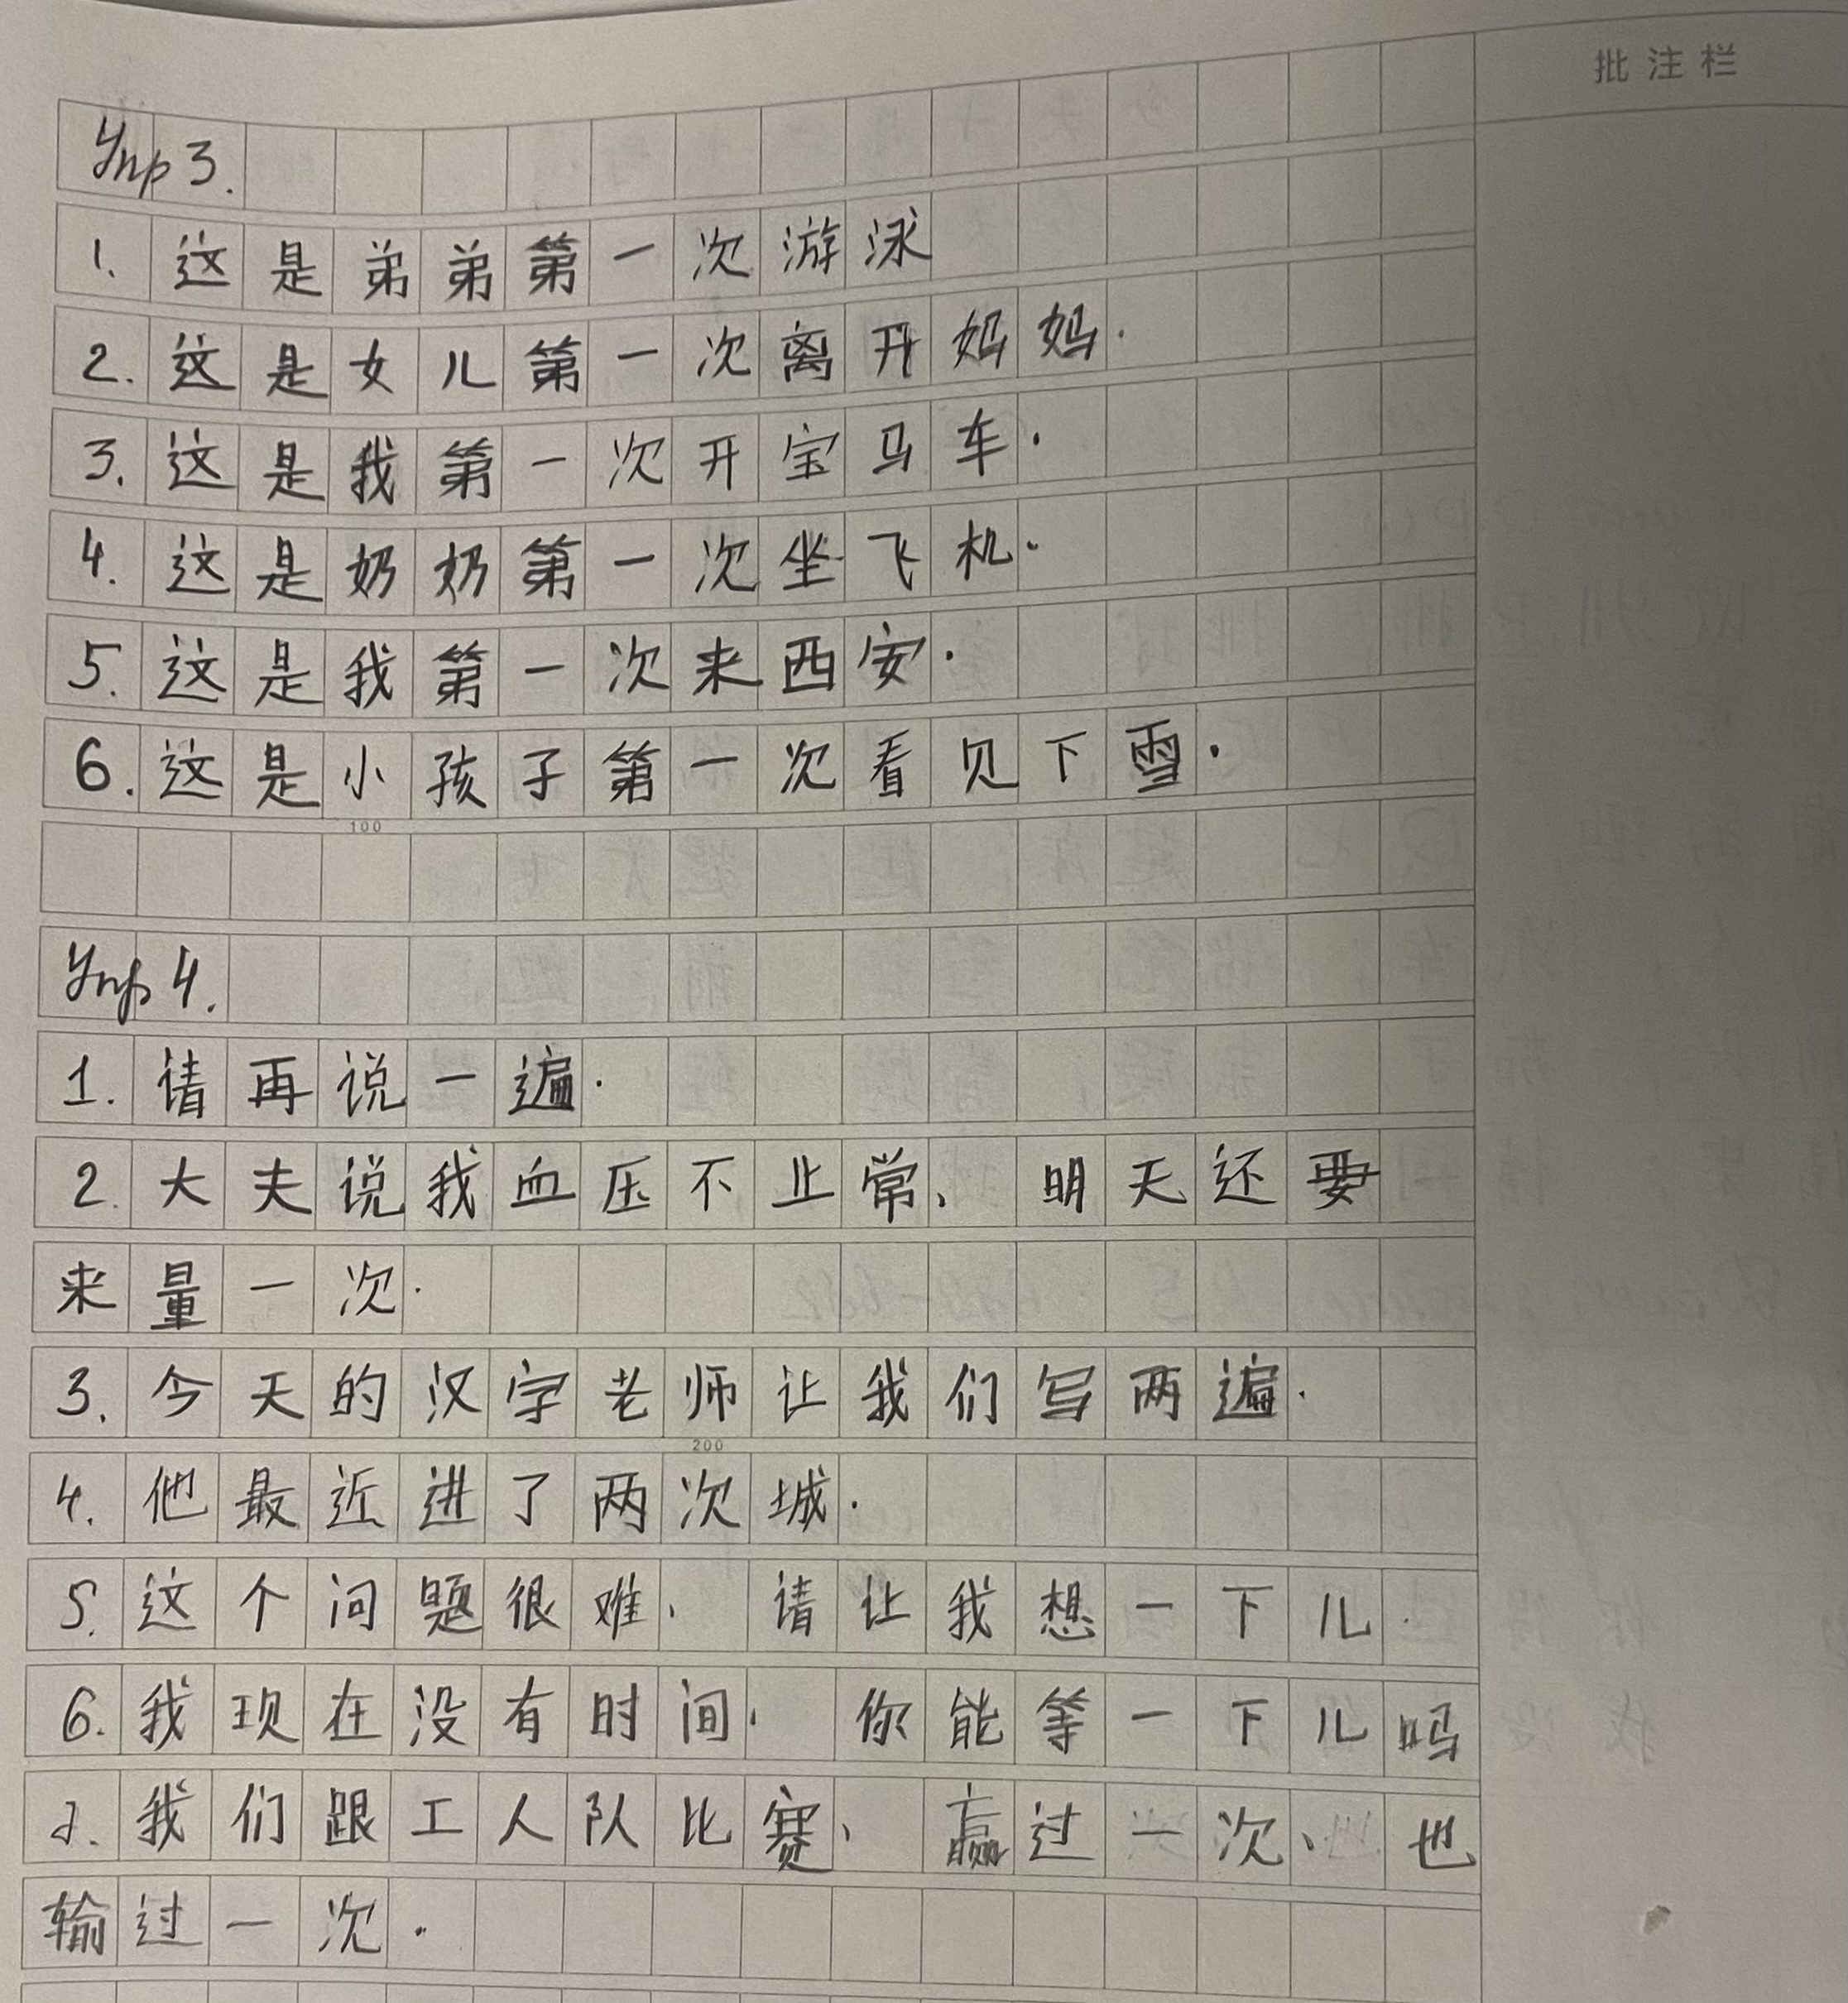 批注栏
Упр 3.
1. 这是弟弟第一次游泳
2. 这是女儿第一次离开妈妈.
3. 这是我第一次开宝马车.
4. 这是奶奶第一次坐飞机.
5. 这是我第一次来西安.
6. 这是小孩子第一次看见下雪.
100
Упр 4.
1. 请再说一遍.
2. 大夫说我血压不正常、明天还要
来量一次.
3. 今天的汉字老师让我们写两遍.
200
4. 他最近进了两次城.
5. 这个问题很难、请让我想一下儿.
6. 我现在没有时间、你能等一下儿吗
7. 我们跟工人队比赛、赢过一次、也
输过一次.